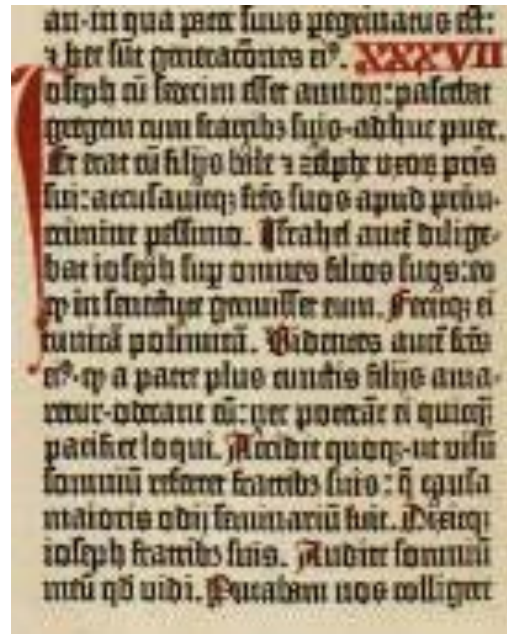 an·in qua pater suus peregrinatus est:
⁊ hec sūt generacōnes ei⁹. XXXVII
Ioseph cū sedecim esset annoꝝ: pascebat
gregem cum fratribꝫ suis·adhuc puer.
Et erat cū filijs bale ⁊ zelphe uxoꝝ pr̄is
sui: accusauitqꝫ fr̄es suos apud patrē
crimine pessimo. Israhel autē dilige-
bat ioseph sup omnes filios suos: eo
ꝙ in senectute genuisset eum. Fecitqꝫ ei
tunicā polimitā. Videntes autē fr̄es
ei⁹·ꝙ a patre plus cunctis filijs ama-
retur·oderant eū: nec poterāt ei quicq̄
pacifice loqui. Accidit quoqꝫ·ut visū
somniū referret fratribꝫ suis: q̄ causa
maioris odij seminariū fuit. Dixitqꝫ
ioseph fratribꝫ suis. Audite somniū
meū qd̄ uidi. Putabam nos colligere